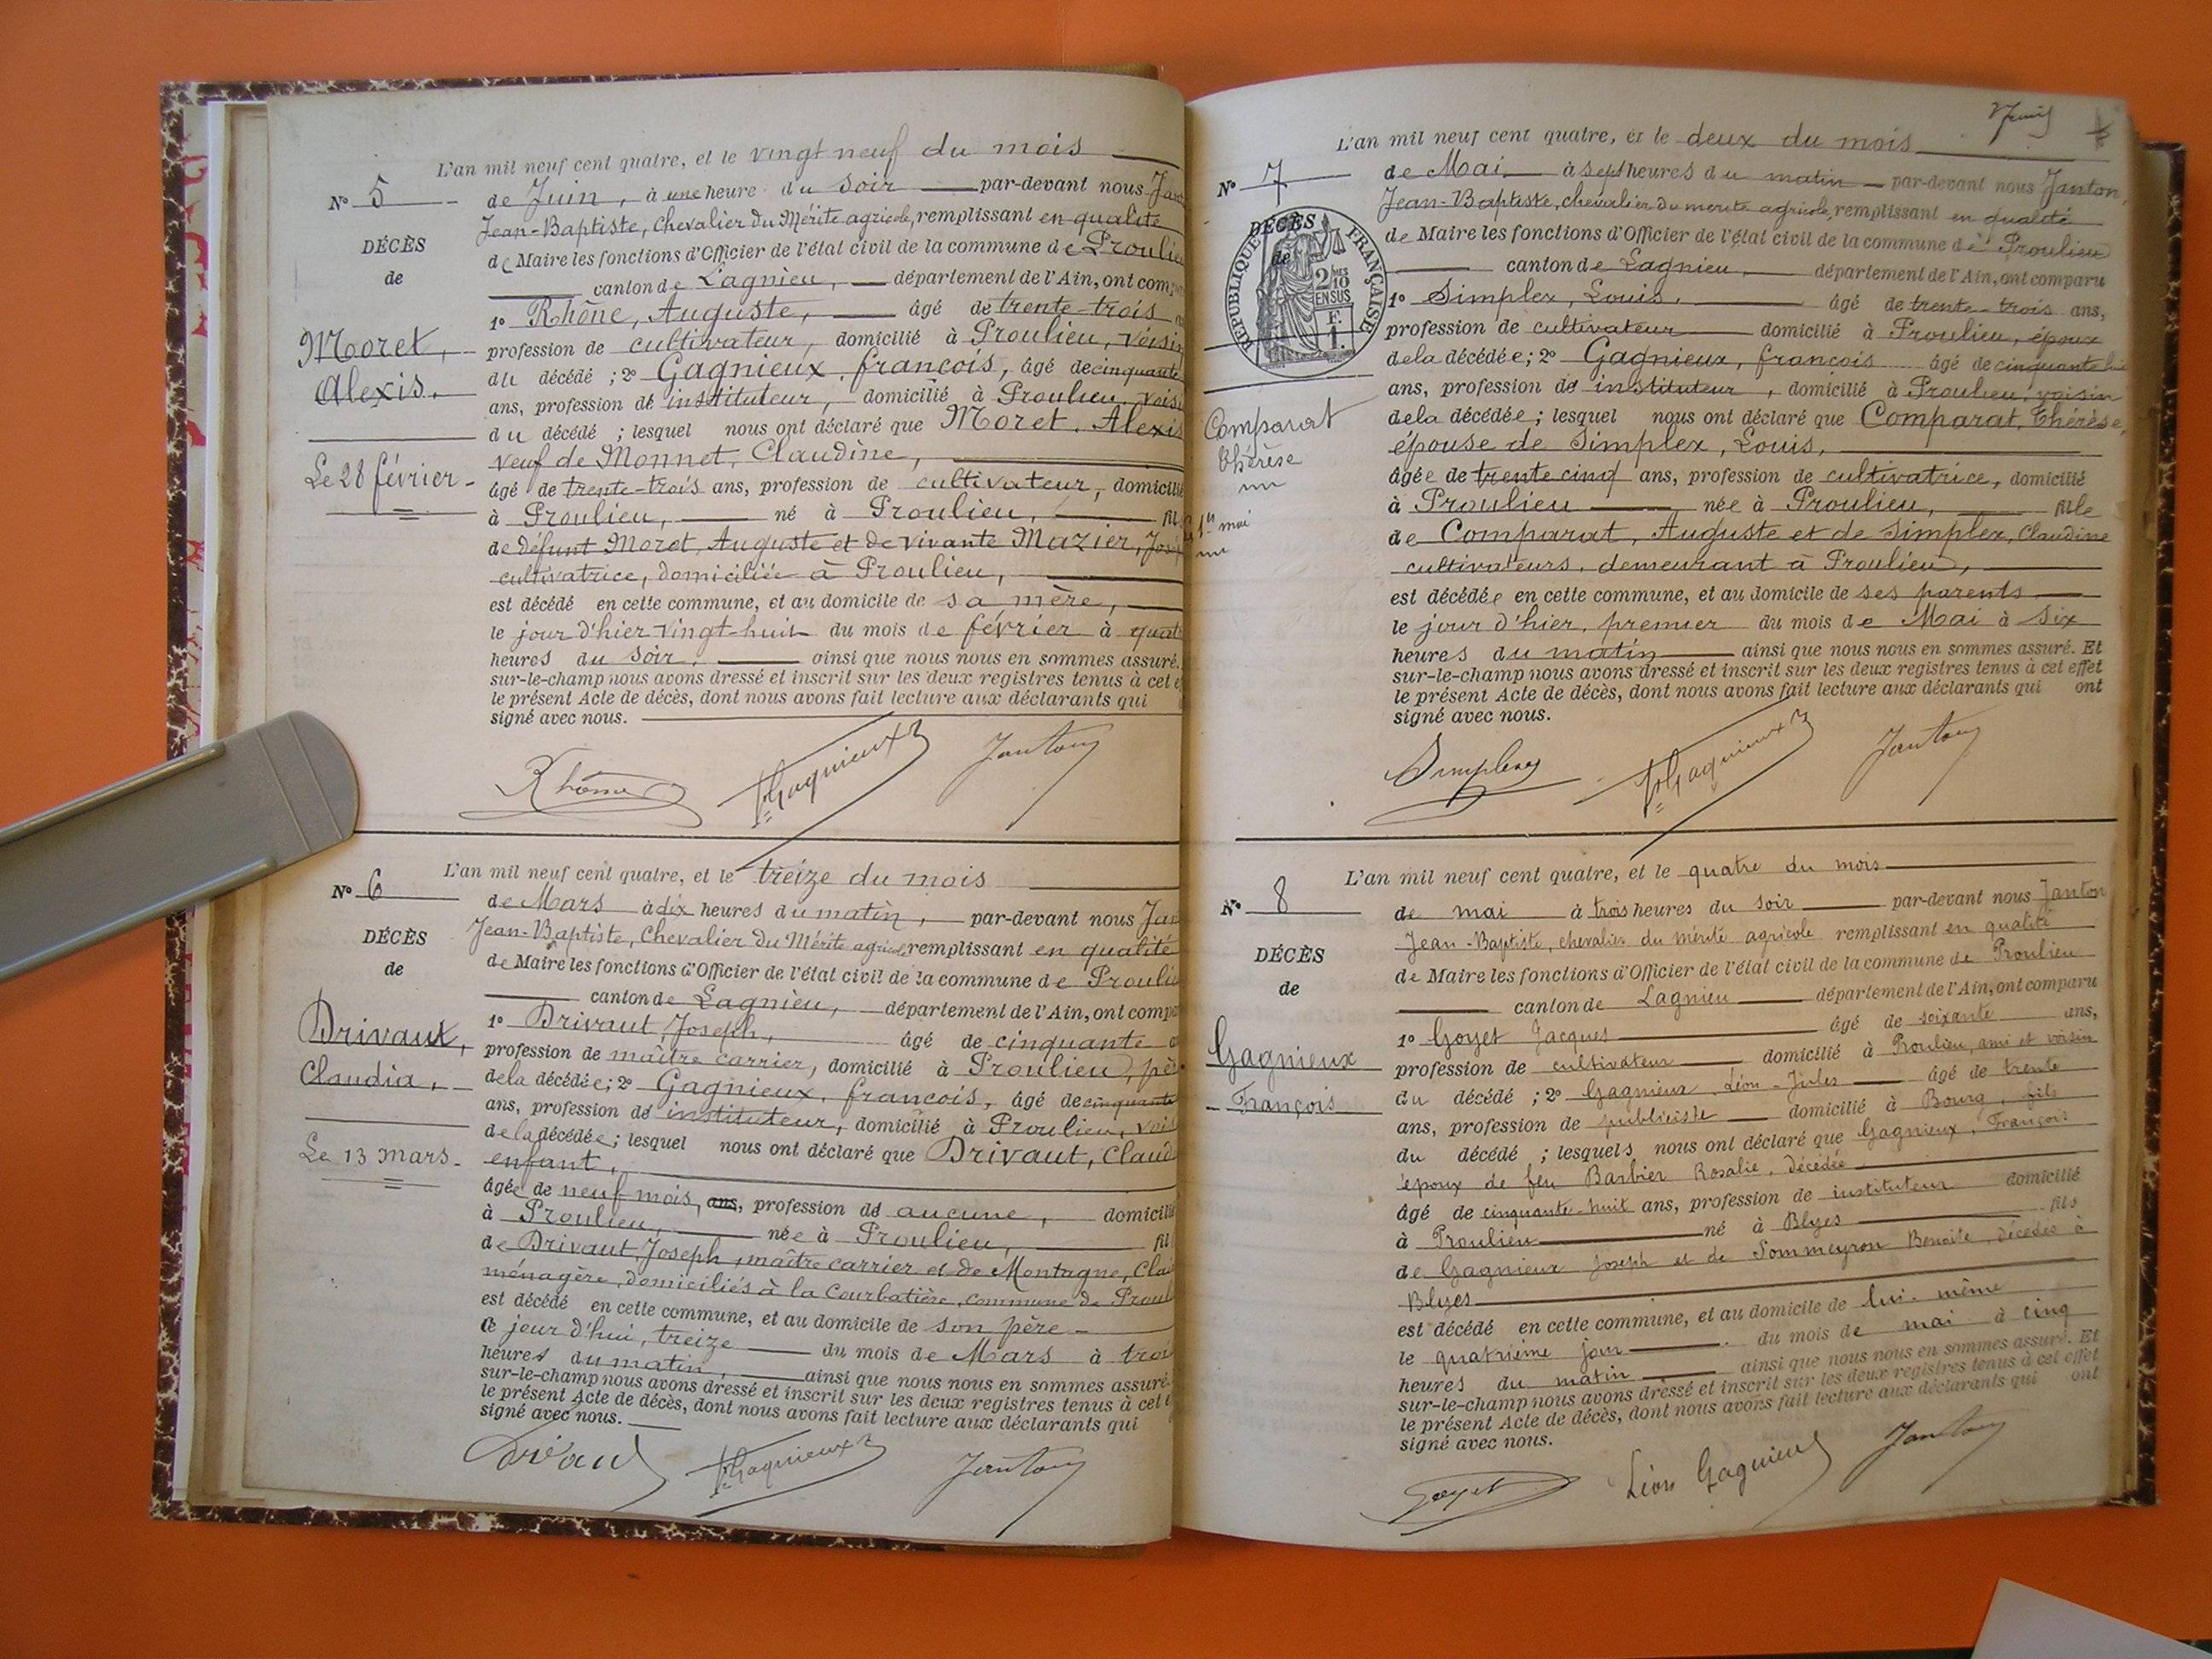 L'an mil neuf cent quatre, et le vingt neuf du mois
N° 5
de Juin, à une heure du soir par-devant nous
Jean-Baptiste, Chevalier du Mérite agricole, remplissant en qualité
DÉCÈS
de Maire les fonctions d'Officier de l'état civil de la commune de Proulieu
de
canton de Lagnieu, département de l'Ain, ont
1° Rhône, Auguste, âgé de trente-trois
Moret,
profession de cultivateur, domicilié à Proulieu, voisin
du décédé ; 2° Gagnieux, françois, âgé de cinquante
Alexis.
ans, profession de instituteur, domicilié à Proulieu, voisi
du décédé ; lesquel nous ont déclaré que Moret, Alexis
veuf de Monnet, Claudine,
Le 28 février
âgé de trente-trois ans, profession de cultivateur, domicilié
à Proulieu, né à Proulieu, fil
de défunt Moret, Auguste et de vivante Mazier, Jos
cultivatrice, domiciliée à Proulieu,
est décédé en cette commune, et au domicile de sa mère,
le jour d'hier vingt-huit du mois de février à quat
heures du soir, ainsi que nous nous en sommes assuré.
sur-le-champ nous avons dressé et inscrit sur les deux registres tenus à cet e
le présent Acte de décès, dont nous avons fait lecture aux déclarants qui
signé avec nous.
Rhône fr Gagnieux Janton
L'an mil neuf cent quatre, et le treize du mois
N° 6
de Mars à dix heures du matin, par-devant nous Jan
Jean-Baptiste, Chevalier du Mérite agricole remplissant en qualité
DÉCÈS
de Maire les fonctions d'Officier de l'état civil de la commune de Proulie
de
canton de Lagnieu, département de l'Ain, ont comp
1° Drivaut, Joseph, âgé de cinquante
Drivaut,
profession de maître carrier, domicilié à Proulieu, pè
Claudia,
de la décédée ; 2° Gagnieux, françois, âgé de cinquante
ans, profession de instituteur, domicilié à Proulieu, vois
de la décédée ; lesquel nous ont déclaré que Drivaut, Claud
Le 13 mars
enfant,
âgée de neuf mois, ans, profession de aucune, domicilié
à Proulieu, née à Proulieu, fil
de Drivaut, Joseph, maître carrier et de Montagne, Clai
ménagère, domiciliés à la Courbatière, commune de Proul
est décédé en cette commune, et au domicile de son père
Ce jour d'hui, treize du mois de Mars à troi
heures du matin, ainsi que nous nous en sommes assuré.
sur-le-champ nous avons dressé et inscrit sur les deux registres tenus à cet e
le présent Acte de décès, dont nous avons fait lecture aux déclarants qui
signé avec nous.
Drivaut fr Gagnieux Janton
L'an mil neuf cent quatre, et le deux du mois
N° 7
de Mai à sept heures du matin par-devant nous Janton,
Jean-Baptiste, chevalier du mérite agricole, remplissant en qualité
DÉCÈS
de
RÉPUBLIQUE FRANÇAISE
2/10
EN SUS
F.
1.
de Maire les fonctions d'Officier de l'état civil de la commune de Proulieu
canton de Lagnieu, département de l'Ain, ont comparu
1° Simplex, Louis, âgé de trente-trois ans,
profession de cultivateur domicilié à Proulieu, époux
de la décédée ; 2° Gagnieux, françois âgé de cinquante hui
ans, profession de instituteur, domicilié à Proulieu, voisin
Comparat
de la décédée ; lesquel nous ont déclaré que Comparat, Thérèse,
Thérèse
épouse de Simplex, Louis,
âgée de trente cinq ans, profession de cultivatrice, domicilié
à Proulieu née à Proulieu, fille
1er mai
de Comparat, Auguste et de Simplex, Claudine
cultivateurs, demeurant à Proulieu,
est décédée en cette commune, et au domicile de ses parents
le jour d'hier, premier du mois de Mai à six
heures du matin ainsi que nous nous en sommes assuré. Et
sur-le-champ nous avons dressé et inscrit sur les deux registres tenus à cet effet
le présent Acte de décès, dont nous avons fait lecture aux déclarants qui ont
signé avec nous.
Simplex fr Gagnieux Janton
L'an mil neuf cent quatre, et le quatre du mois
N° 8
de mai à trois heures du soir par-devant nous Janton
Jean-Baptiste, chevalier du mérite agricole remplissant en qualité
DÉCÈS
de Maire les fonctions d'Officier de l'état civil de la commune de Proulieu
de
canton de Lagnieu département de l'Ain, ont comparu
1° Goyet Jacques âgé de soixante ans,
Gagnieux
profession de cultivateur domicilié à Proulieu, ami et voisin
François
du décédé ; 2° Gagnieux Léon-Jules âgé de trente
ans, profession de publiciste domicilié à Bourg, fils
du décédé ; lesquels nous ont déclaré que Gagnieux, François
époux de feu Barbier Rosalie, décédée
âgé de cinquante-huit ans, profession de instituteur domicilié
à Proulieu né à Blyes fils
de Gagnieux Joseph et de Sommeyron Benoite, décédés à
Blyes
est décédé en cette commune, et au domicile de lui-même
le quatrième jour du mois de mai à cinq
heures du matin ainsi que nous nous en sommes assuré. Et
sur-le-champ nous avons dressé et inscrit sur les deux registres tenus à cet effet
le présent Acte de décès, dont nous avons fait lecture aux déclarants qui ont
signé avec nous.
Goyet Léon Gagnieux Janton